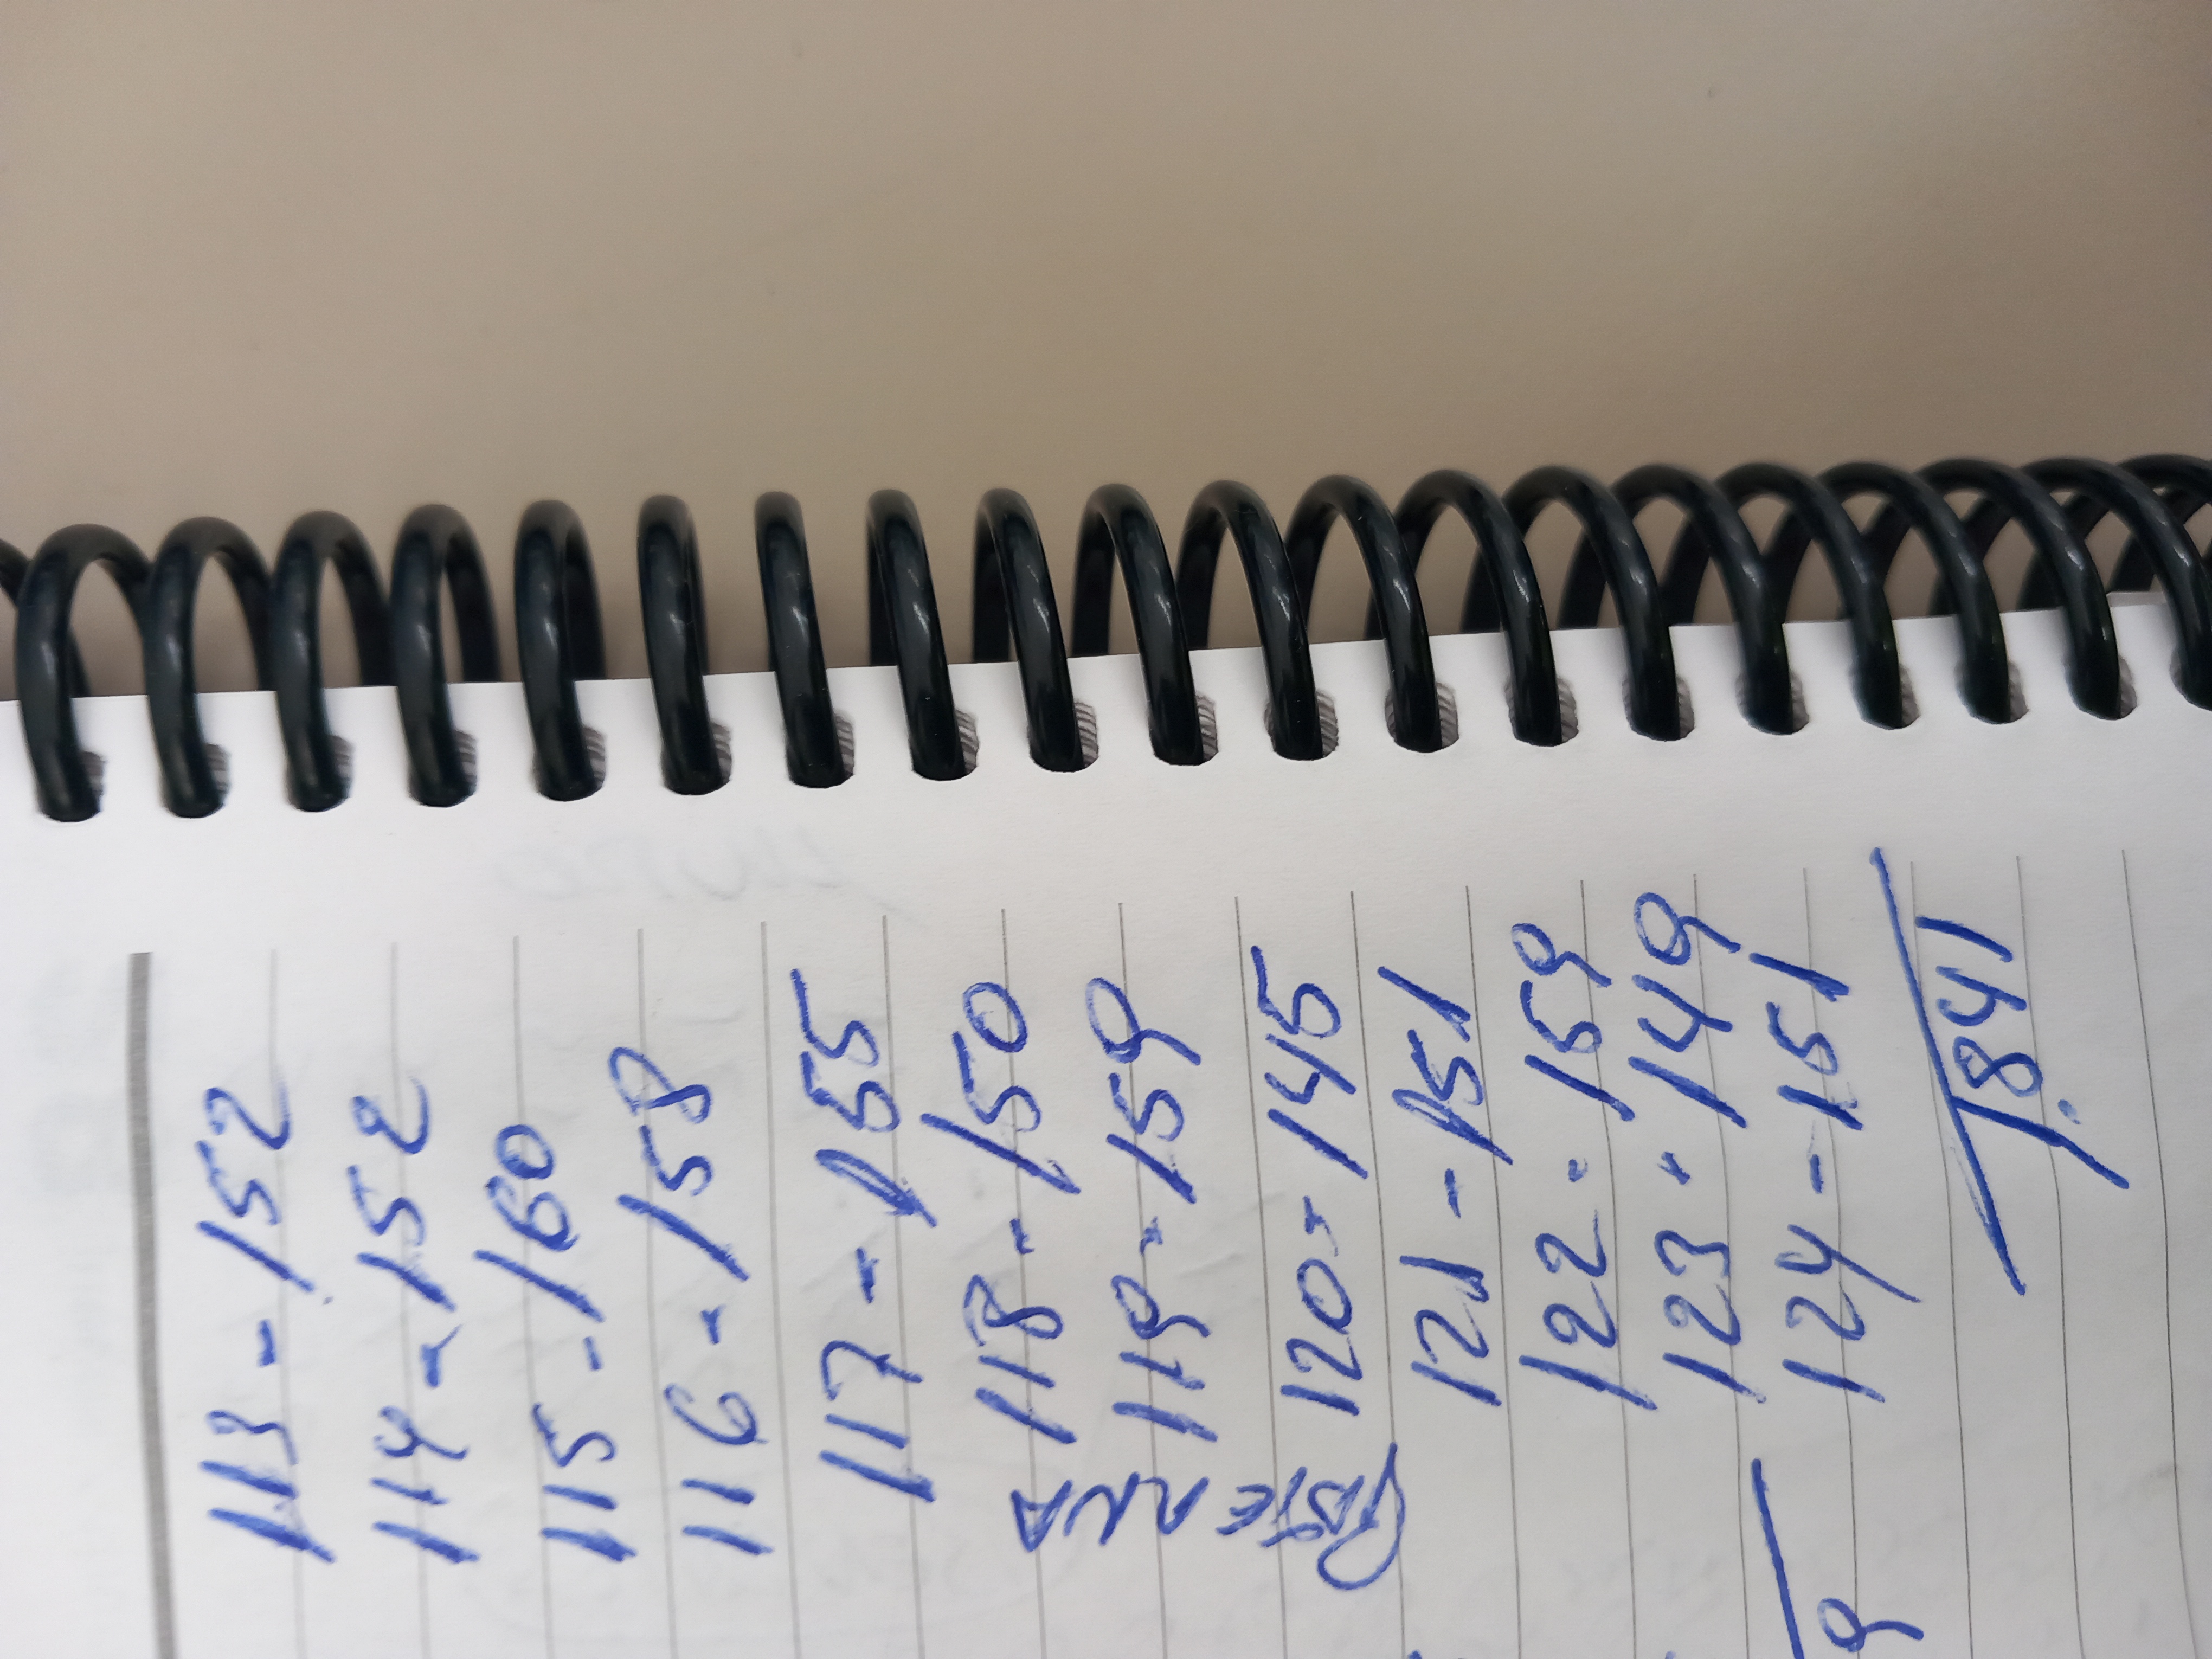 113 - 152
114 - 152
115 - 160
116 - 158
117 - 155
118 - 150
119 - 159
120 - 145
121 - 151
122 - 159
123 - 149
124 - 151
1.841
9